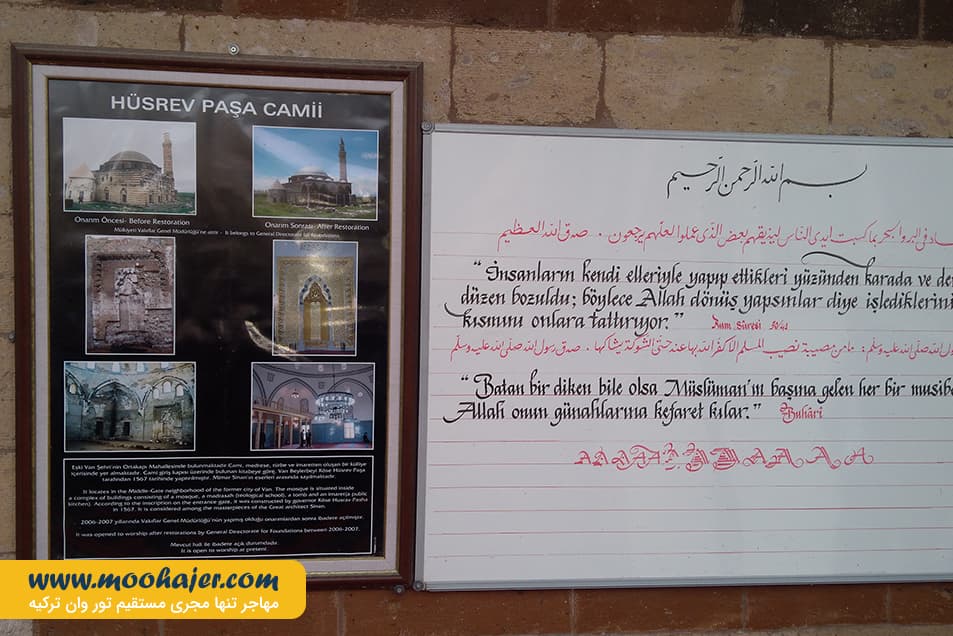 HÜSREV PAŞA CAMİİ
Onarım Öncesi- Before Restoration
Onarım Sonrası- After Restoration
Mülkiyeti Vakıflar Genel Müdürlüğü'ne aittir - It belongs to General Directorate for Foundations
Eski Van Şehri'nin Ortakapı Mahallesinde bulunmaktadır. Cami, medrese, türbe ve imaretten oluşan bir külliye
içerisinde yer almaktadır. Cami giriş kapısı üzerinde bulunan kitabeye göre, Van Beylerbeyi Köse Hüsrev Paşa
tarafından 1567 tarihinde yapılmıştır. Mimar Sinan'ın eserleri arasında sayılmaktadır.
It locates in the Middle-Gate neighborhood of the former city of Van. The mosque is situated inside
a complex of buildings consisting of a mosque, a madrasah (theological school), a tomb and an imaret(a public
kitchen). According to the inscription on the entrance gate, it was constructed by governor Köse Hüsrev Pasha
in 1567. It is considered among the masterpieces of the Great architect Sinan.
2006-2007 yıllarında Vakıflar Genel Müdürlüğü'nün yapmış olduğu onarımlardan sonra ibadete açılmıştır.
It was opened to worship after restorations by General Directorate for Foundations between 2006-2007.
Mevcut hali ile ibadete açık durumdadır.
It is open to worship at present.
بسم الله الرحمن الرحيم
في البر والبحر بما كسبت ايدي الناس ليذيقهم بعض الذي عملوا لعلهم يرجعون . صدق الله العظيم
“İnsanların kendi elleriyle yapıp ettikleri yüzünden karada ve
düzen bozuldu; böylece Allah dönüş yapsınlar diye işlediklerini
kısmını onlara tattırıyor.” Rum Sûresi
الله صلى الله عليه وسلم : ما من مصيبة تصيب المسلم الا كفر الله بها عنه حتى الشوكة يشاكها . صدق رسول الله صلى الله عليه وسلم
“Batan bir diken bile olsa Müslüman'ın başına gelen her bir
Allah onun günahlarına kefaret kılar.” Buhâri
www.moohajer.com
مهاجر تنها مجری مستقیم تور وان ترکیه